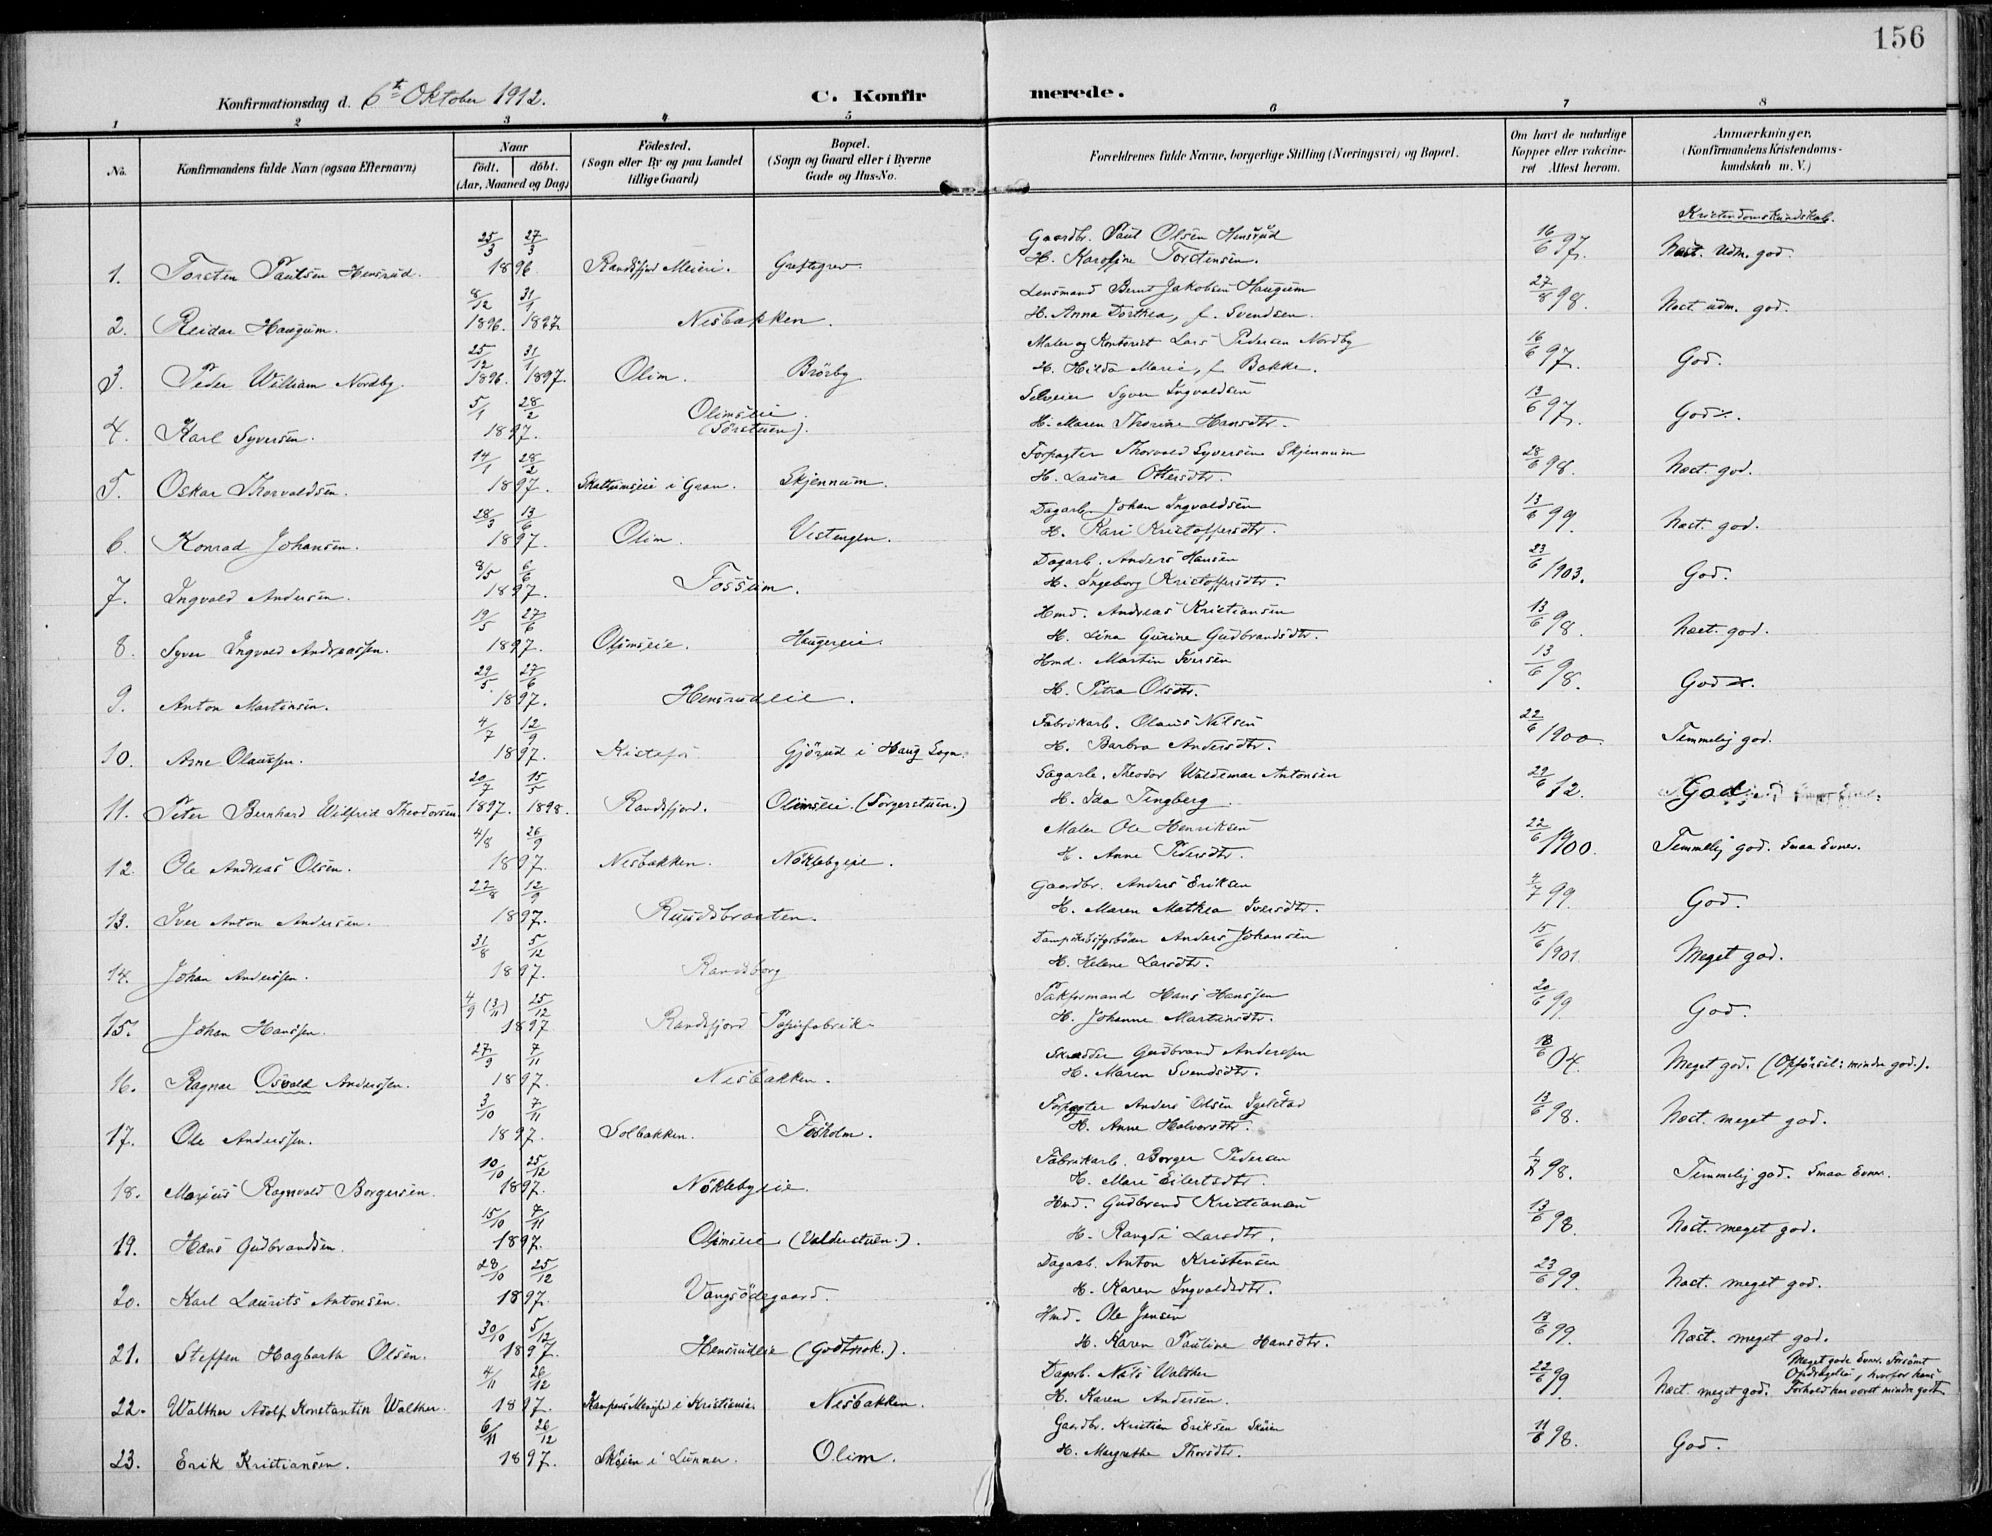 156
Konfirmationsdag d. 6te Oktober 1912.
C. Konfirmerede.
1 2 3 4 5 6 7 8
No.
Konfirmandens fulde Navn (ogsaa Efternavn)
Naar
født. døbt.
(Aar, Maaned og Dag)
Fødested.
(Sogn eller By og paa Landet
tillige Gaard)
Bopæl.
(Sogn og Gaard eller i Byerne
Gade og Hus-No.
Forældrenes fulde Navne, borgerlige Stilling (Næringsvei) og Bopæl.
Om havt de naturlige
Kopper eller vakcine-
ret Attest herom.
Anmærkninger,
(Konfirmandens Kristendoms-
kundskab m. V.)
Kristendomskundskab.
25/3 27/3 Gaardbr. Paul Olsen Hensrud 16/6 97.
1. Torsten Paulsen Hensrud. 1896 Randsfjord Meieri. Greftegrev H. Karoline Torstensen. Næst. udm. god.
8/12 31/1 Lensmand Bernt Jakobsen Haugum 27/8 98.
2. Reidar Haugum. 1896. 1897 Nesbakken. H. Anna Dorthea, f. Svendsen. Næst udm. god.
25/12 31/1 Maler og Kontorist Lars Pedersen Nordby 16/6 97.
3. Peder William Nordby. 1896. 1897. Olim. Brörby H. Hilda Marie, f. Bakke. God.
5/1 28/2 Olimseie Selveier Syver Ingvaldsen 13/6 97.
4. Karl Syversen. 1897. (Sörstuen). H. Maren Thorine Hansdtr. God.
14/1 28/2 Forpagter Thorvald Syversen Skjennum 28/6 98.
5. Oskar Thorvaldsen. 1897. Skattumseie i Gran. Skjennum. H. Laura Ottersdtr. Næst. god.
28/3 13/6 Dagarb. Johan Ingvaldsen 13/6 99.
6. Konrad Johansen. 1897. Olim. Vestengen. H. Kari Kristoffersdtr. Næst. god.
8/5 6/6 Dagarb. Anders Hansen 23/6 1903.
7. Ingvald Andersen. 1897. Fossum. H. Ingeborg Kristoffersdtr. God.
19/5 27/6 Hmd. Andreas Kristiansen 13/6 98.
8. Syver Ingvald Andreassen. 1897. Olimseie. Haugereie H. Lina Gurine Gudbrandsdtr. Næst. god.
29/5 27/6 Hmd. Martin Iversen 13/6 98.
9. Anton Martinsen. 1897. Hensrudeie. H. Petra Olsdtr. God.
4/7 12/9 Fabrikarb. Olaus Nilsen 22/6 1900.
10. Arne Olaussen. 1897. Kistefos Gjörud i Haug Sogn. H. Barbra Andersdtr. Temmelig god.
20/7 15/5 Sagarb. Theodor Waldemar Antonsen 29/6 12.
11. Peter Bernhard Wilfrid Theodorsen 1897. 1898. Randsfjord. Olimseie. (Torgerstuen.) H. Ida Tingberg. God
4/8 26/9 Maler Ole Henriksen 22/6 1900.
12. Ole Andreas Olsen. 1897. Nesbakken. Nöklebyeie. H. Anne Pedersdtr. Temmelig god. Smaa Evner.
22/8 12/9 Gaardbr. Anders Eriksen 4/7 99.
13. Iver Anton Andersen. 1897. Ruudsbraaten. H. Maren Mathea Iversdtr. God.
31/8 5/12 Anders Johansen 15/6 1901
14. Johan Anderssen. 1897. Randsborg H. Helene Larsdtr. Meget god.
4/9 (3/11) 25/12 Pakformand Hans Hanssen 20/6 99.
15. Johan Hanssen. 1897 Randsfjord Papirfabrik. H. Johanne Martinsdtr. God.
27/9 7/11 Skrædder Gudbrand Anderssen 18/6 04.
16. Ragnar Osvald Anderssen. 1897. Nesbakken. H. Maren Svendsdtr. Meget god. (Opförsel: mindre god.).
3/10 7/11 Forpagter Anders Olsen Igelstad 13/6 98.
17. Ole Anderssen. 1897. Solbakken. Fosholm. H. Anne Halvorsdtr. Næst. meget god.
10/10 25/12 Fabrikarb. Borger Pedersen 98.
18. Marius Ragnvald Borgersen. 1897. Nöklebyeie. H. Mari Eilertsdtr. Temmelig god. Smaa Evner.
15/10 7/11 Hmd. Gudbrand Kristiansen 13/6 98.
19. Hans Gudbrandsen. 1897. Olimseie (Valderstuen.). H. Rangdi Larsdtr. Næst. meget god.
28/10 25/12 Dagarb. Anton Kristensen 23/6 99.
20. Karl Laurits Antonsen. 1897. Vangsödegaard. H. Karen Ingvaldsdtr. Næst. meget god.
30/10 5/12 Hmd. Ole Jensen 13/6 99.
21. Steffen Hagbarth Olsen. 1897. Hensrudeie (Godtnok.). H. Karen Pauline Hansdtr. Næst. meget god.
4/11 26/12 Dagarb. Nils Walther 22/6 99. Meget gode Evner. Forsömt
Opdragelse, hvorfor hans
22. Walther Adolf Konstantin Walther. 1897. Kampens Menighed i Kristiania. Nesbakken. H. Karen Andersen. Næst. meget god. Forhold har været mindre godt.
6/11 26/12 Gaardbr. Kristian Eriksen Sköien 11/6 98.
23. Erik Kristiansen. 1897. Sköien i Lunner. Olim. H. Margrethe Thorsdtr. God.